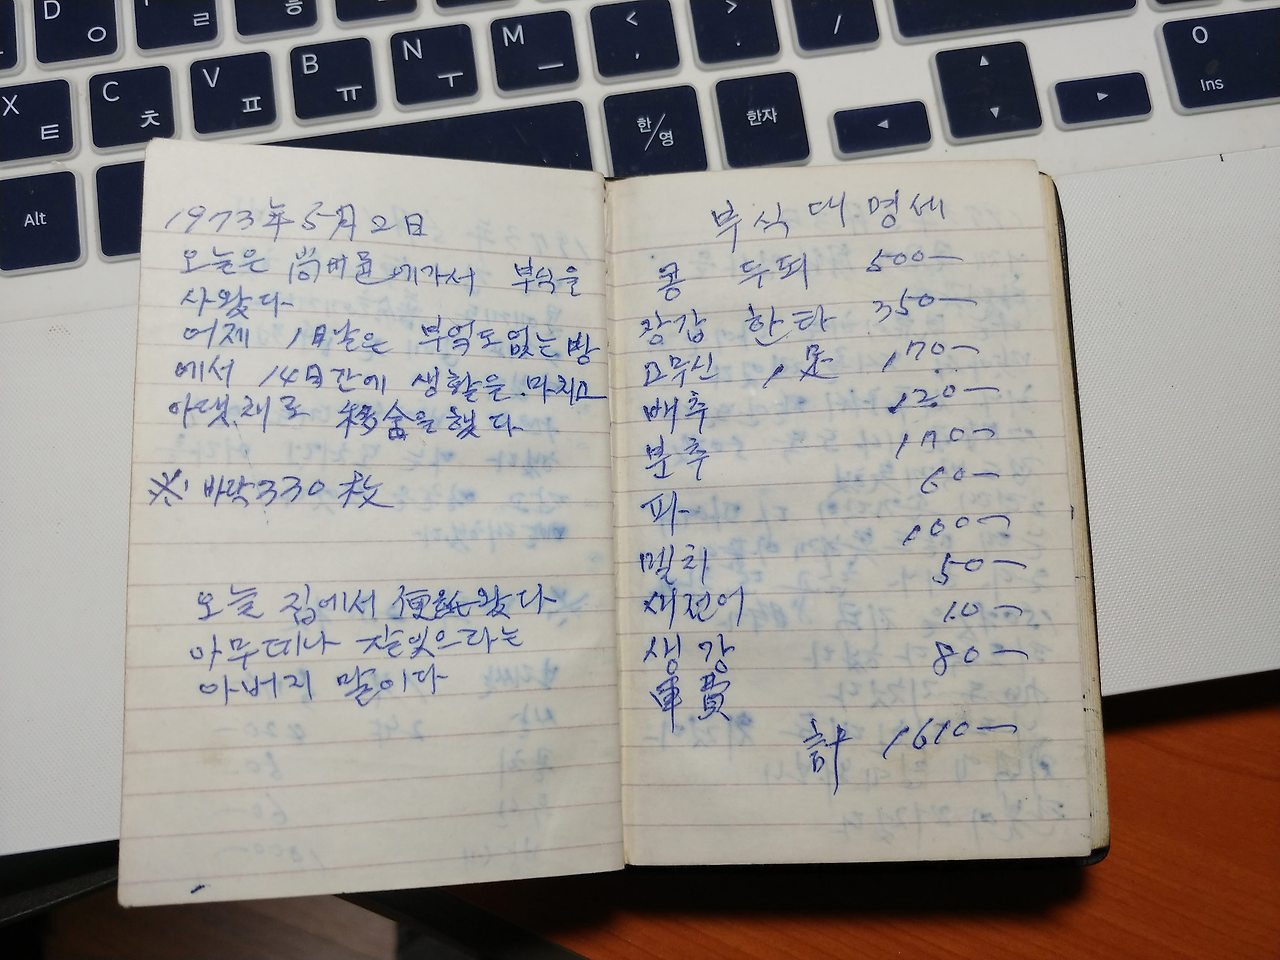 D ㅇ
ㄹ
ㅎ
X ㅌ
C ㅊ
V ㅍ
B ㅠ
N ㅜ
M ㅡ
< ,
> .
/
Alt
한/영
한자
◄
▲
▼
►
0
Ins
1973年 5月 2日
오늘은 에가서 부식을
사왔다
어제 1日날은 부엌도없는방
에서 14日간에 생활을 마치고
아랫채로 移舍을 했다
※ 바닥 330枚
오늘 집에서 便紙왔다
아무떠나 잘있으라는
아버지 말이다
부식대명세
콩 두되 500-
장갑 한타 350-
고무신 1足 170-
배추 120-
분추 170-
파 60-
멸치 100-
새전어 50-
생강 10-
運費 80-
計 1610-